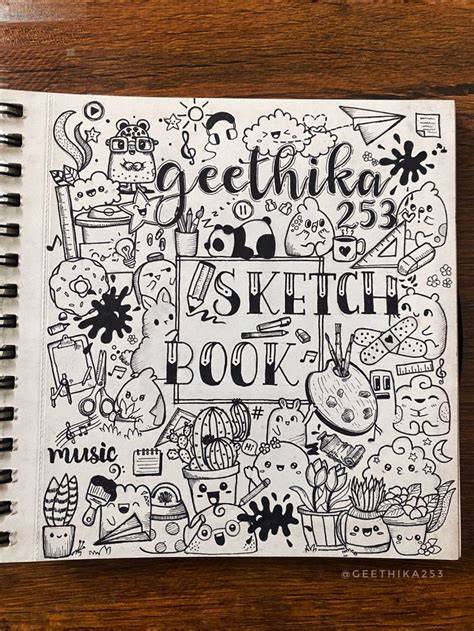 geethika
253
SKETCH
BOOK
music
#
HI
@GEETHIKA253